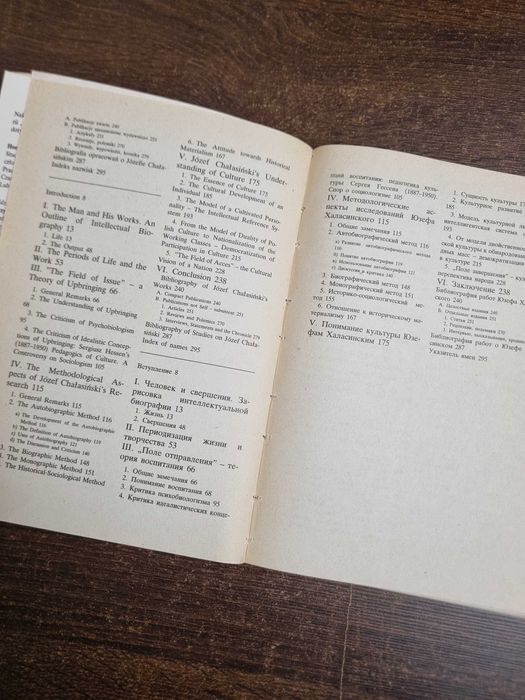 A. Publikacje zwarte 240
B. Publikacje niesamoistne wydawniczo 251
1. Artykuły 251
2. Recenzje, polemiki 270
3. Wywiady, wypowiedzi, kronika 279
Bibliografia opracowań o Józefie Chała-
sińskim 287
Indeks nazwisk 295
Introduction 8
I. The Man and His Works. An
Outline of Intellectual Bio-
graphy 13
1. Life 13
2. The Output 48
II. The Periods of Life and the
Work 53
III. "The Field of Issue" – a
Theory of Upbringing 66
1. General Remarks 66
2. The Understanding of Upbringing
68
3. The Criticism of Psychobiologism
95
4. The Criticism of Idealistic Concep-
tions of Upbringing: Sergiusz Hessen's
(1887–1950) Pedagogics of Culture. A
Controversy on Sociologism 105
IV. The Methodological As-
pects of Józef Chałasiński's Re-
search 115
1. General Remarks 115
2. The Autobiographic Method 116
a) The Development of the Autobiographic
Method 116
b) The Definition of Autobiography 119
c) Uses of Autobiography 121
d) The Discussion and Criticism 140
3. The Biographic Method 148
4. The Monographic Method 151
The Historical-Sociological Method
6. The Attitude towards Historical
Materialism 167
V. Józef Chałasiński's Under-
standing of Culture 175
1. The Essence of Culture 175
2. The Cultural Development of an
Individual 185
3. The Model of a Cultivated Perso-
nality – The Intellectual Reference Sy-
stem 193
4. From the Model of Duality of Po-
lish Culture to Nationalization of the
Working Classes – Democratization of
Participation in Culture 215
5. "The Field of Acces" – the Cultural
Vision of a Nation 228
VI. Conclusion 238
Bibliography of Józef Chałasiński's
Works 240
A. Compact Publications 240
B. Publications not Self – subsistent 251
1. Articles 251
2. Reviews and Polemics 270
3. Interviews, Statements and the Chronicle 279
Bibliography of Studies on Józef Chała-
siński 287
Index of names 295
Вступление 8
I. Человек и свершения. За-
рисовка интеллектуальной
биографии 13
1. Жизнь 13
2. Свершения 48
II. Периодизация жизни и
творчества 53
III. „Поле отправления" – те-
ория воспитания 66
1. Общие замечания 66
2. Понимание воспитания 68
3. Критика психобиологизма 95
4. Критика идеалистических конце-
пций воспитания: педагогика куль-
туры Сергея Гессена (1887–1950).
Спор о социологизме 105
IV. Методологические ас-
пекты исследований Юзефа
Халасинского 115
1. Общие замечания 115
2. Автобиографический метод 116
а) Развитие автобиографического метода
116
б) Понятие автобиографии 119
в) Использование автобиографии 121
г) Дискуссия и критика 140
3. Биографический метод 148
4. Монографический метод 151
5. Историко-социологический ме-
тод 155
6. Отношение к историческому ма-
териализму 167
V. Понимание культуры Юзе-
фам Халасиньским 175
1. Сущность культуры
2. Культурное развитие
185
3. Модель культурной
интеллигентская система
193
4. От модели двойственности
ской культуры к
вых масс – демократизация
в культуре 215
5. „Поле завершения" – культурная
перспектива народа 228
VI. Заключение 238
Библиография работ Юзефа
ского 240
А. Целостные издания 240
Б. Отдельные издания 251
1. Статьи 251
2. Рецензии, полемики 270
3.
Библиография работ о Юзефе
синском 287
Указатель имен 295